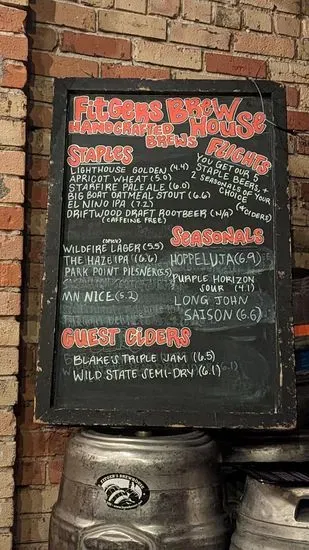 Fitgers Brew House
Handcrafted Brews
Staples
Lighthouse Golden (4.4)
Apricot Wheat (5.0)
Starfire Pale Ale (6.0)
Big Boat Oatmeal Stout (6.6)
El Nino IPA (7.2)
Driftwood Draft Rootbeer (N/A)
(Caffeine Free)
Flights
You get our 5
Staple beers, +
2 seasonals of your
choice
(4 ciders)
Wildfire Lager (5.5)
The Haze IPA (6.6)
Park Point Pilsner (5.5)
MN Nice (5.2)
Seasonals
Hoppeluja (6.9)
Purple Horizon
Sour (4.1)
Long John
Saison (6.6)
Guest Ciders
Blake's Triple Jam (6.5)
Wild State Semi-Dry (6.1)